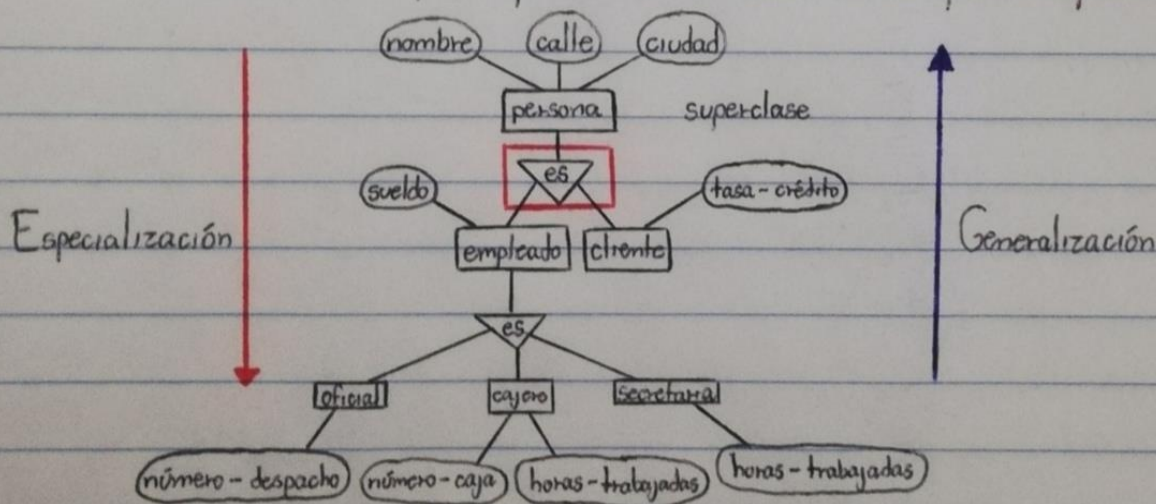 nombre calle ciudad
persona superclase
es
sueldo tasa-crédito
Especialización empleado cliente Generalización
es
oficial cajero secretaria
número-despacho número-caja horas-trabajadas horas-trabajadas